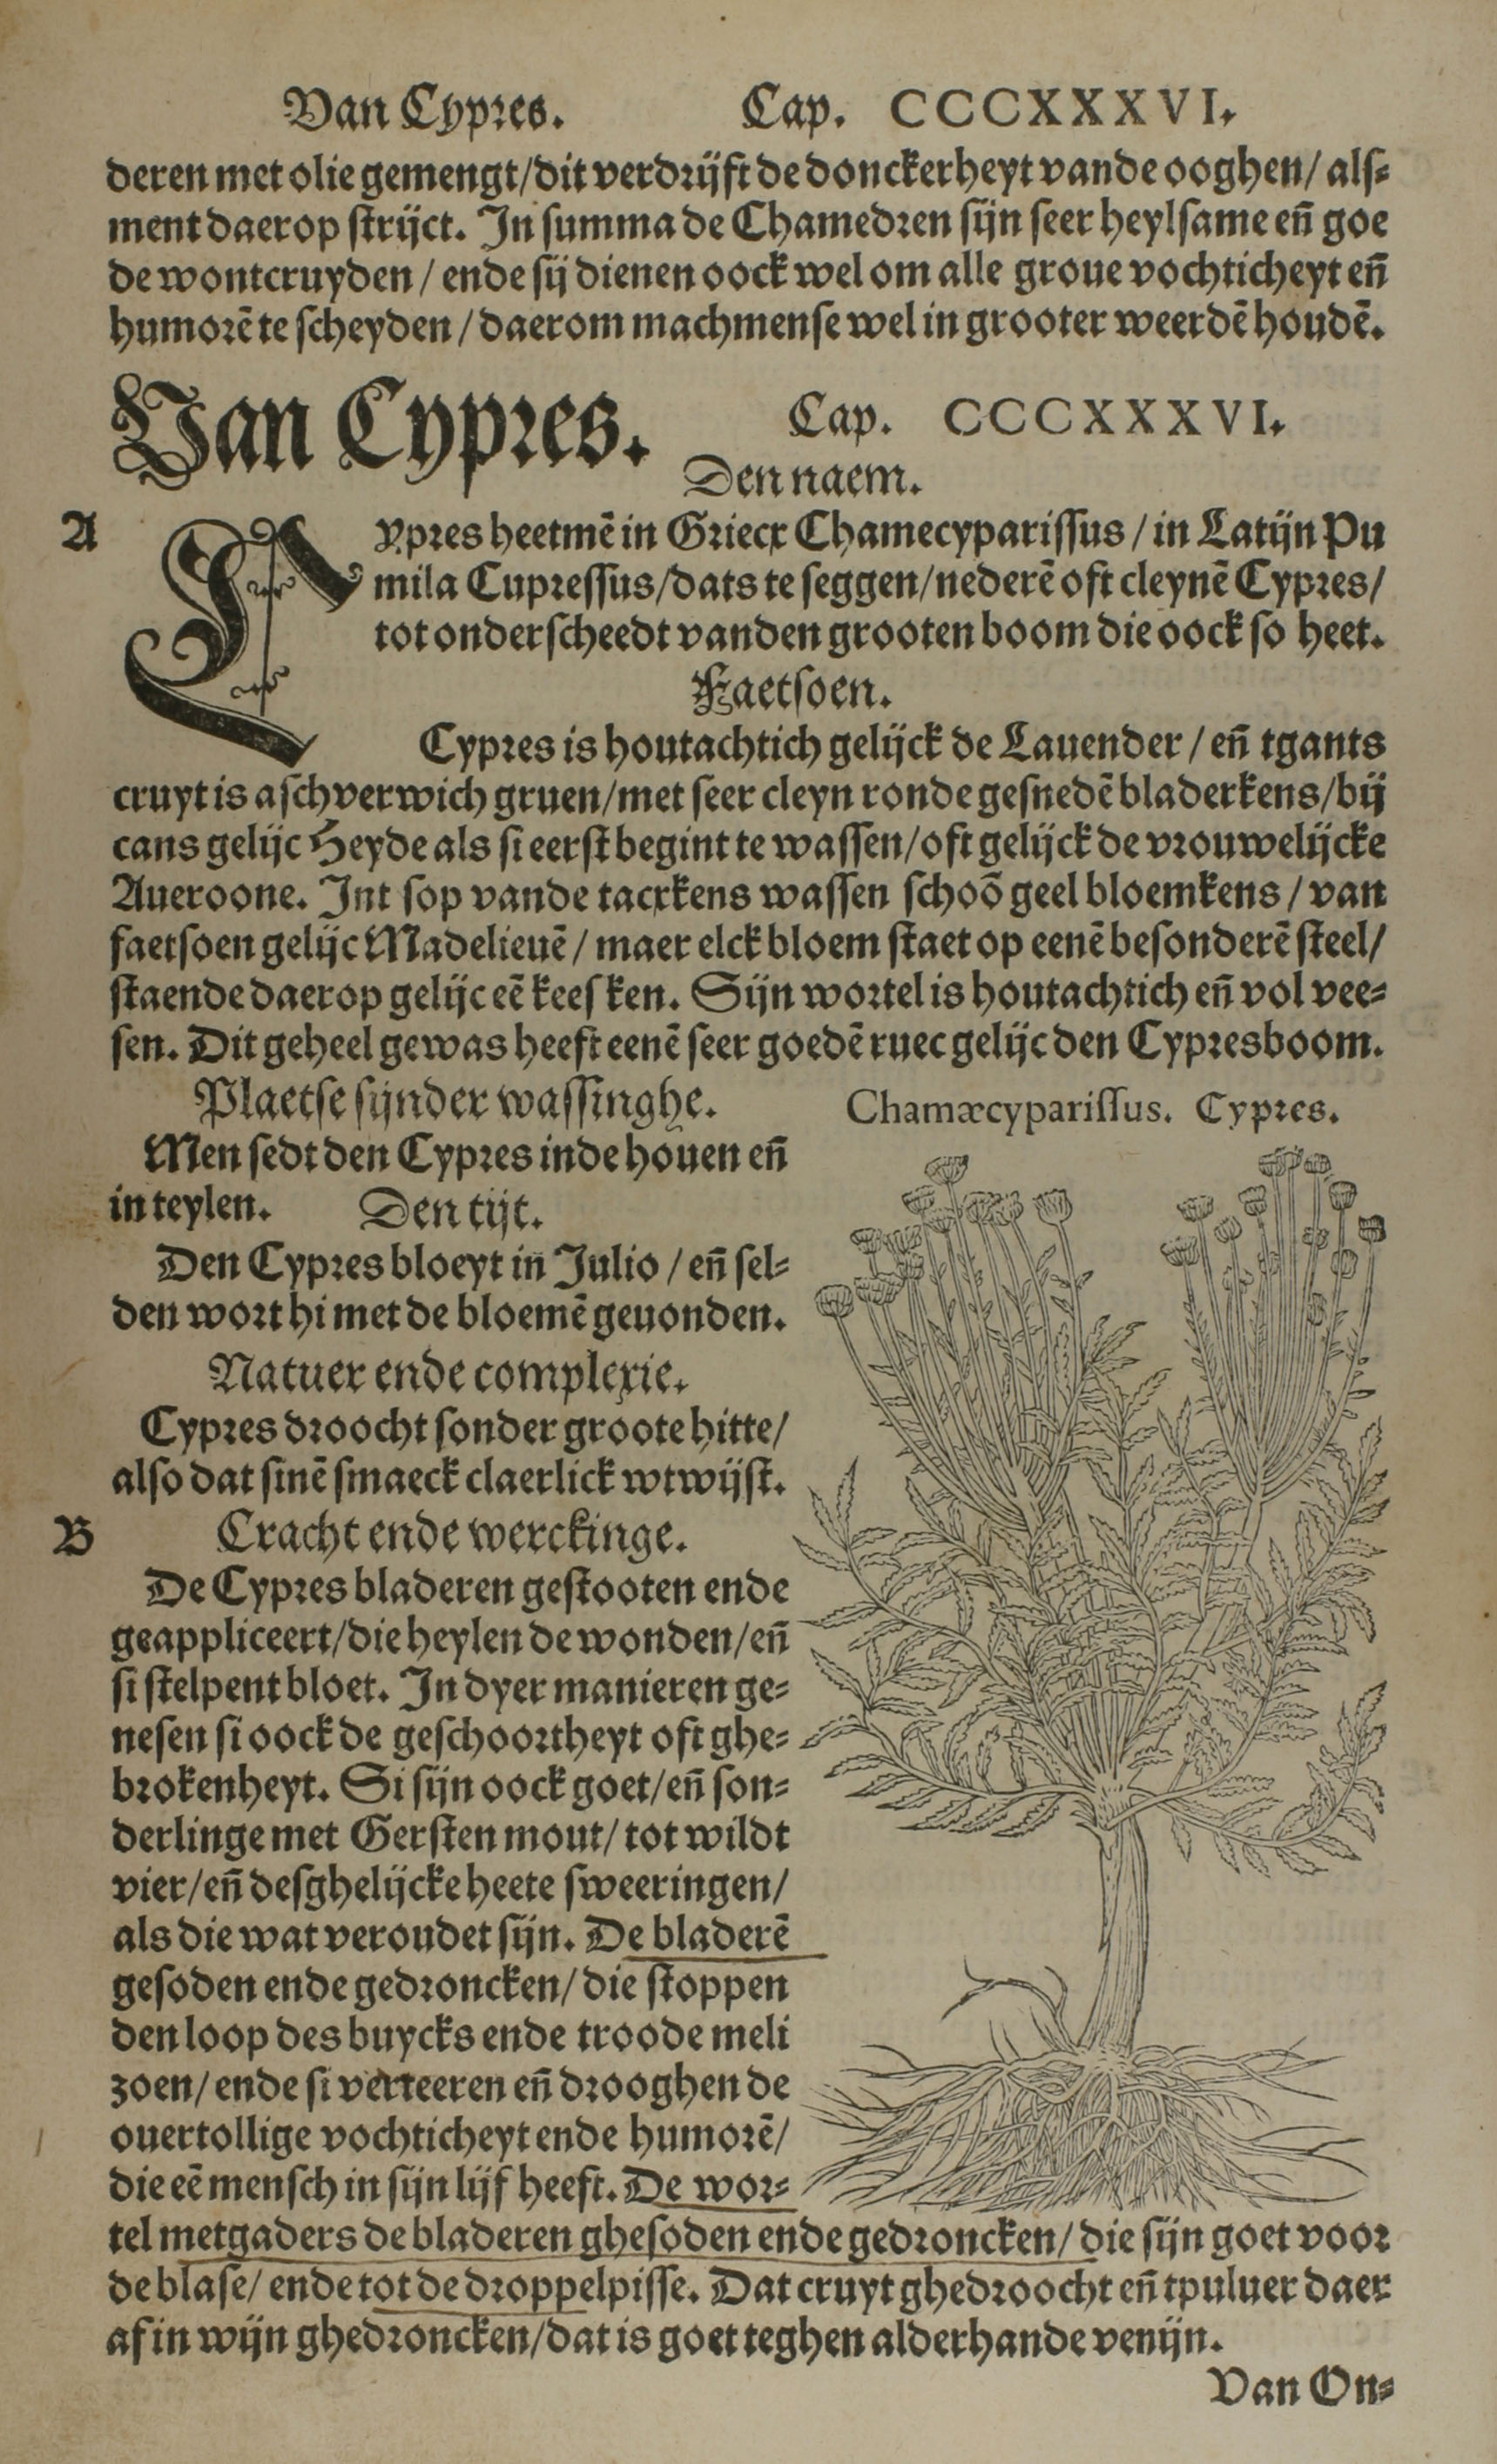 Van Cypres. Cap. CCCXXXVI.
deren met olie gemengt/dit verdrijft de donckerheyt vande ooghen/ als⸗
ment daerop strijct. In summa de Chamedren sijn seer heylsame eñ goe
de wontcruyden / ende sij dienen oock wel om alle groue vochticheyt eñ
humorē te scheyden / daerom machmense wel in grooter weerdē houdē.
Van Cypres. Cap. CCCXXXVI.
Den naem.
A
CYpres heetmē in Griecx Chamecyparissus / in Latijn Pu
mila Cupressus/dats te seggen/nederē oft cleynē Cypres/
tot onderscheedt vanden grooten boom die oock so heet.
Faetsoen.
Cypres is houtachtich gelijck de Lauender / eñ tgants
cruyt is aschverwich gruen/met seer cleyn ronde gesnedē bladerkens/bij
cans gelijc Heyde als si eerst begint te wassen/oft gelijck de vrouwelijcke
Aueroone. Int sop vande tacxkens wassen schoō geel bloemkens / van
faetsoen gelijc Madelieuē / maer elck bloem staet op eenē besonderē steel/
staende daerop gelijc eē keesken. Sijn wortel is houtachtich eñ vol vee⸗
sen. Dit geheel gewas heeft eenē seer goedē ruec gelijc den Cypresboom.
Plaetse sijnder wassinghe.
Men sedt den Cypres inde houen eñ
in teylen. Den tijt.
Den Cypres bloeyt in Julio / eñ sel⸗
den wort hi met de bloemē geuonden.
Natuer ende complexie.
Cypres droocht sonder groote hitte/
also dat sinē smaeck claerlick wtwijst.
B
Cracht ende werckinge.
De Cypres bladeren gestooten ende
geappliceert/die heylen de wonden/eñ
si stelpent bloet. In dyer manieren ge⸗
nesen si oock de geschoortheyt oft ghe⸗
brokenheyt. Si sijn oock goet/eñ son⸗
derlinge met Gersten mout/ tot wildt
vier/eñ desghelijcke heete sweeringen/
als die wat veroudet sijn. De bladerē
gesoden ende gedroncken/ die stoppen
den loop des buycks ende troode meli
zoen/ ende si verteeren eñ drooghen de
ouertollige vochticheyt ende humorē/
die eē mensch in sijn lijf heeft. De wor⸗
tel metgaders de bladeren ghesoden ende gedroncken/ die sijn goet voor
de blase/ ende tot de droppelpisse. Dat cruyt ghedroocht eñ tpuluer daer
af in wijn ghedroncken/dat is goet teghen alderhande venijn.
Chamæcyparissus. Cypres.
Van On⸗